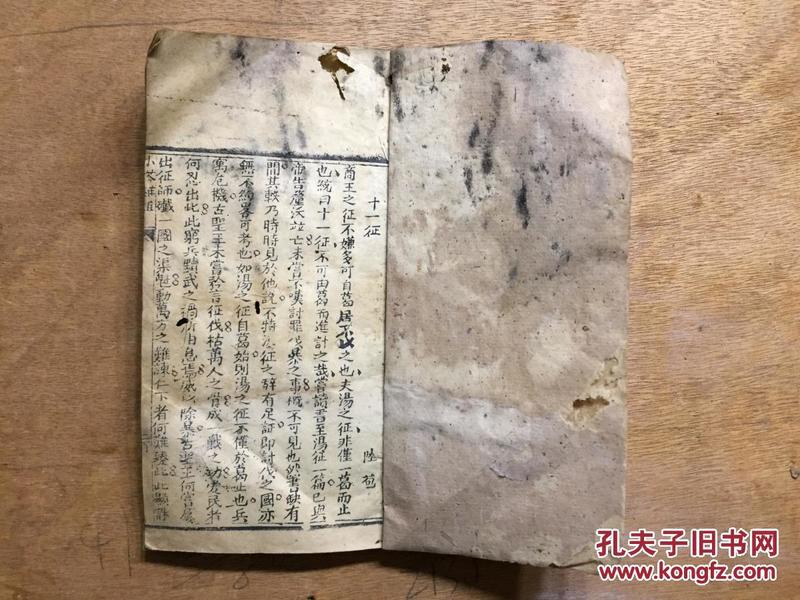 十一征 陸荀
商王之征不嫌多可自葛居之也夫湯之征非僅一葛而止
也統曰十一征不可由葛而進計之哉嘗讀書至湯征一篇已與
帝告釐沃竝亡未嘗不嘆討罪之事概不可見也然書缺有
間其軼乃時時見於他說不特征之辭有足証即討伐之國亦
無不約畧可考也如湯之征自葛始則湯之征不僅於葛止也兵
寓危機古聖王未嘗輕言征伐枯萬人之骨成一戰之功愛民者
何忍出此窮兵黷武之禍所由息焉除暴何嘗
出征師殲一國之渠魁動萬方之難諫仁下者何難此
小
孔夫子旧书网
www.kongfz.com